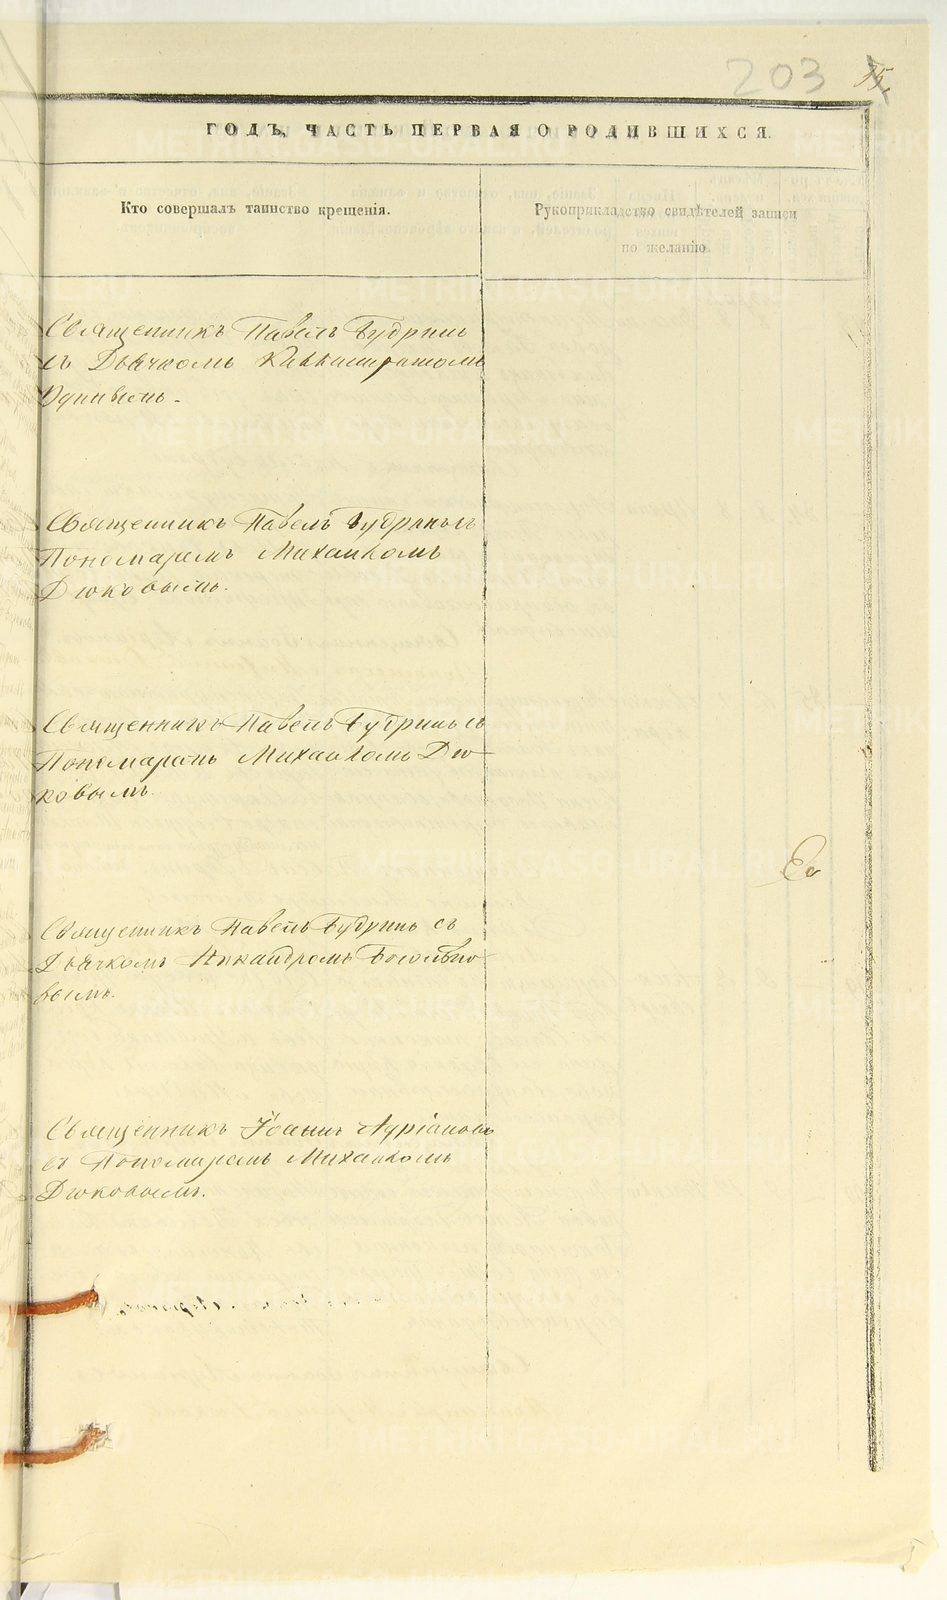 203
ГОДЪ, ЧАСТЬ ПЕРВАЯ О РОДИВШИХСЯ.
Кто совершалъ таинство крещенія.
Рукоприкладство свидѣтелей записи
по желанію.
Священникъ Павелъ Будринъ
съ Дьячкомъ
Священникъ Павелъ Будринъ съ
Пономаремъ Михаиломъ
Дюковымъ.
Священникъ Павелъ Будринъ съ
Пономаремъ Михаиломъ Дю-
ковымъ.
Священникъ Павелъ Будринъ съ
Дьячкомъ Никандромъ Боголѣпо-
вымъ.
Священникъ Іоаннъ
съ Пономаремъ Михаиломъ
Дюковымъ.
METRIKI.GASO-URAL.RU